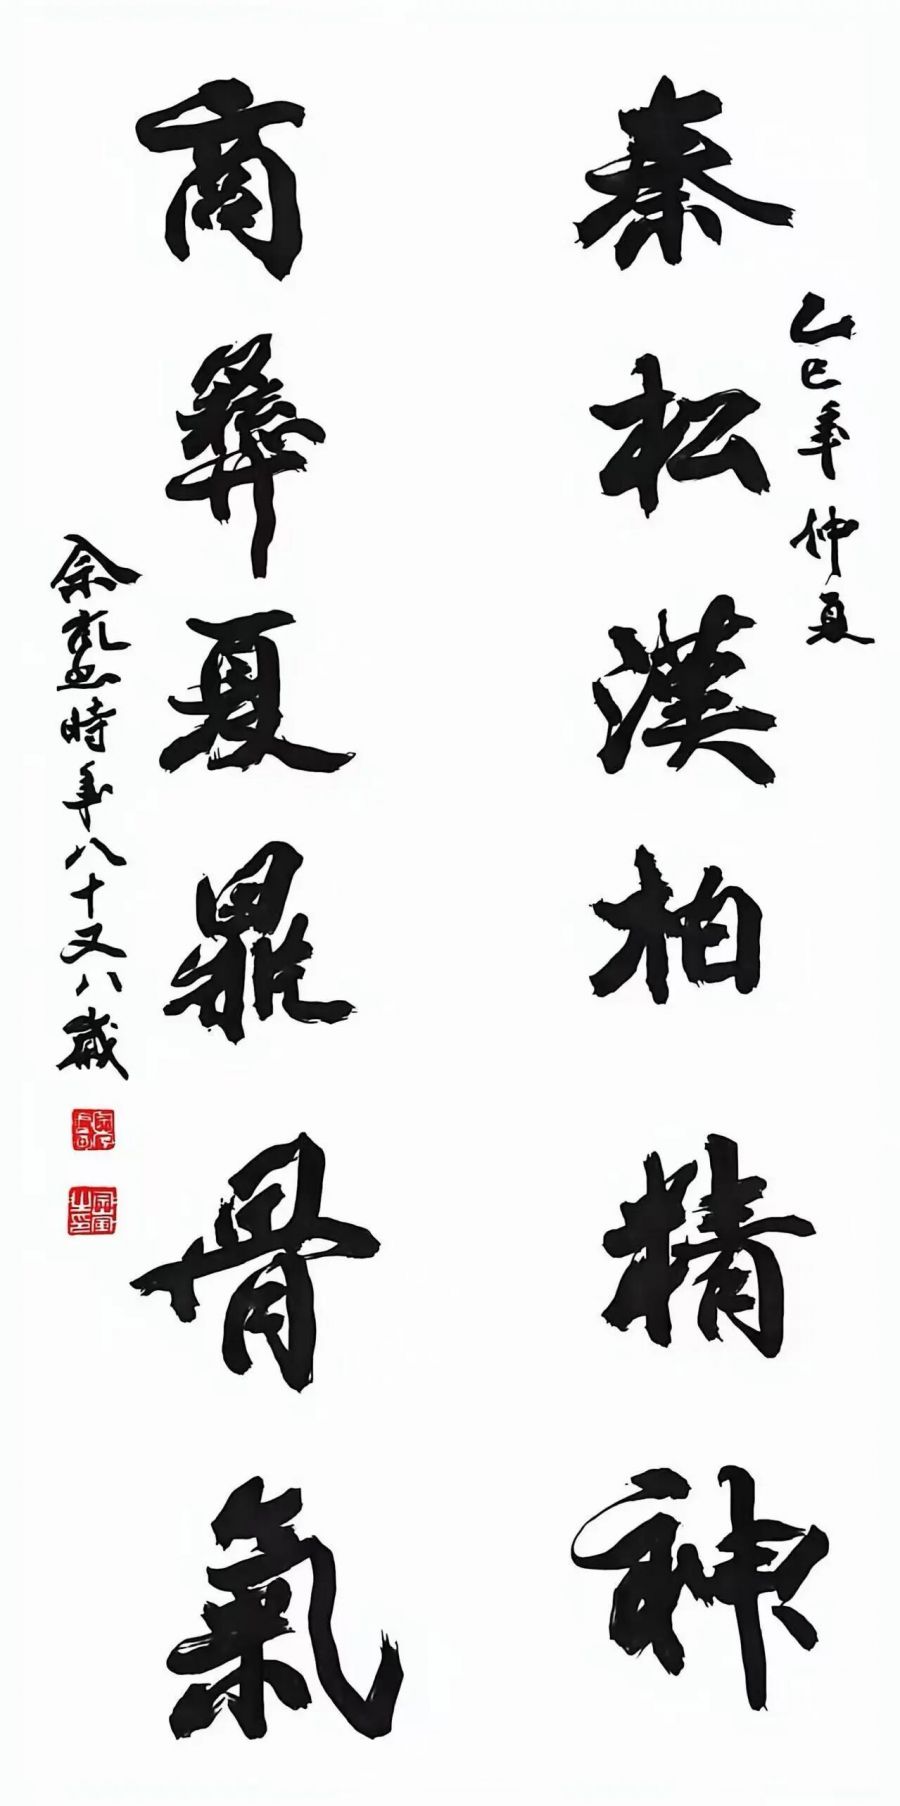 秦松漢柏精神
乙巳年仲夏
商彝夏鼎骨氣
時年八十又八歲